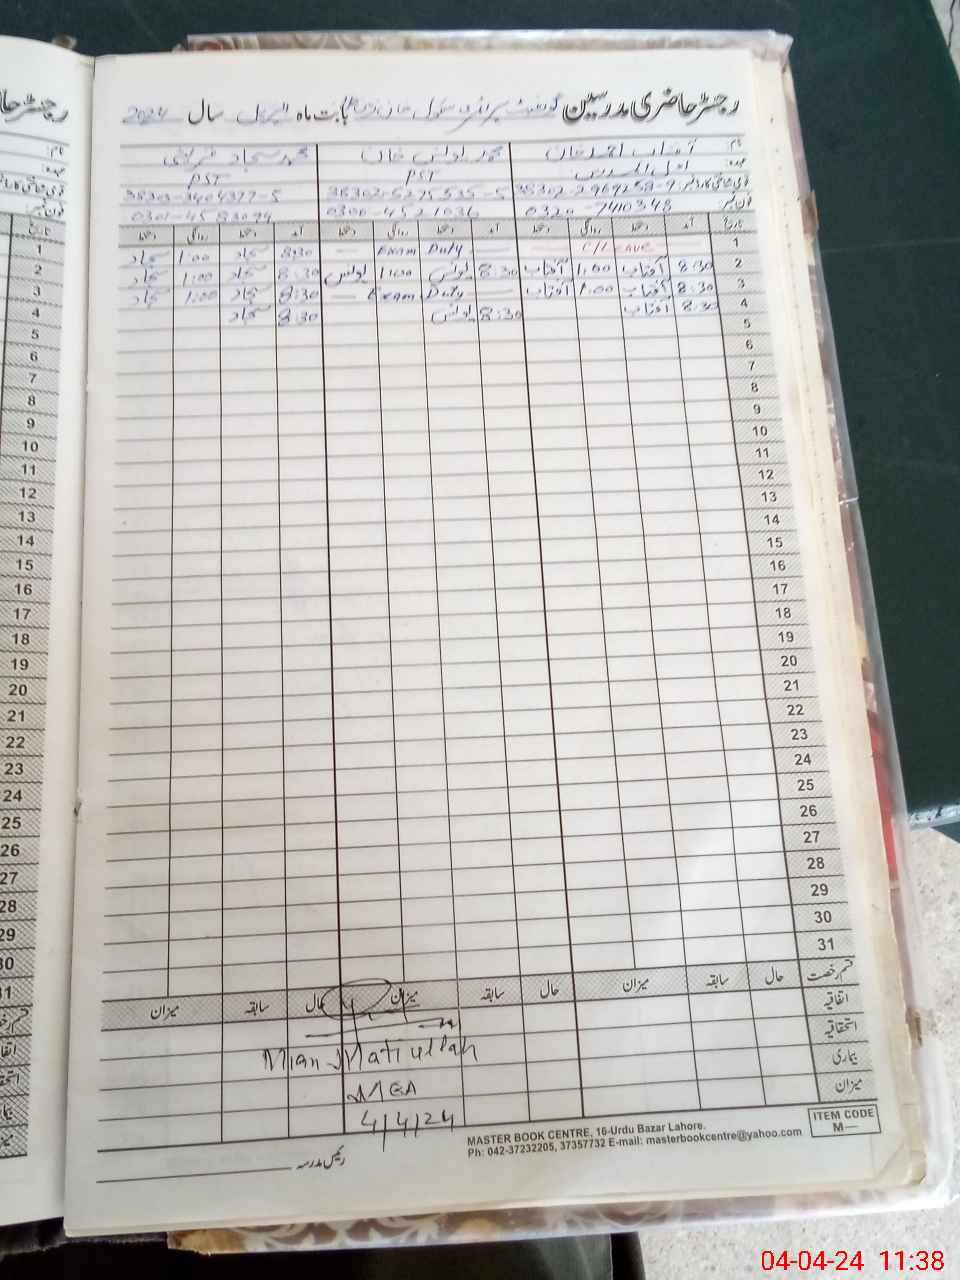 رجسٹر حاضری مدرسین گورنمنٹ پرائمری سکول بابت ماہ اپریل سال 2024
نام: آفتاب احمد خان محمد یونس خان محمد سجاد قریشی
عہدہ: PST PST
قومی شناختی کارڈ نمبر: 38302-2969258-9 38302-5275535-5 38303-3404377-5
فون نمبر: 0320-7410348 0300-4521036 0301-4583094
تاریخ آمد دستخط روانگی دستخط آمد دستخط روانگی دستخط آمد دستخط روانگی دستخط
1 C/Leave Exam Duty 8:30 سجاد 1:00 سجاد
2 8:30 آفتاب 1:00 آفتاب 8:30 یونس 1:00 یونس 8:30 سجاد 1:00 سجاد
3 8:30 آفتاب 1:00 آفتاب Exam Duty 8:30 سجاد 1:00 سجاد
4 8:30 آفتاب 8:30 یونس 8:30 سجاد
5
6
7
8
9
10
11
12
13
14
15
16
17
18
19
20
21
22
23
24
25
26
27
28
29
30
31
قسم رخصت حال سابقہ میزان حال سابقہ میزان حال سابقہ میزان
اتفاقیہ
استحقاقیہ
بیماری
میزان
Mian Matiullah
MEA
4/4/24
رئیس مدرسہ
MASTER BOOK CENTRE, 16-Urdu Bazar Lahore.
Ph: 042-37232205, 37357732 E-mail: masterbookcentre@yahoo.com
ITEM CODE
M—
04-04-24 11:38